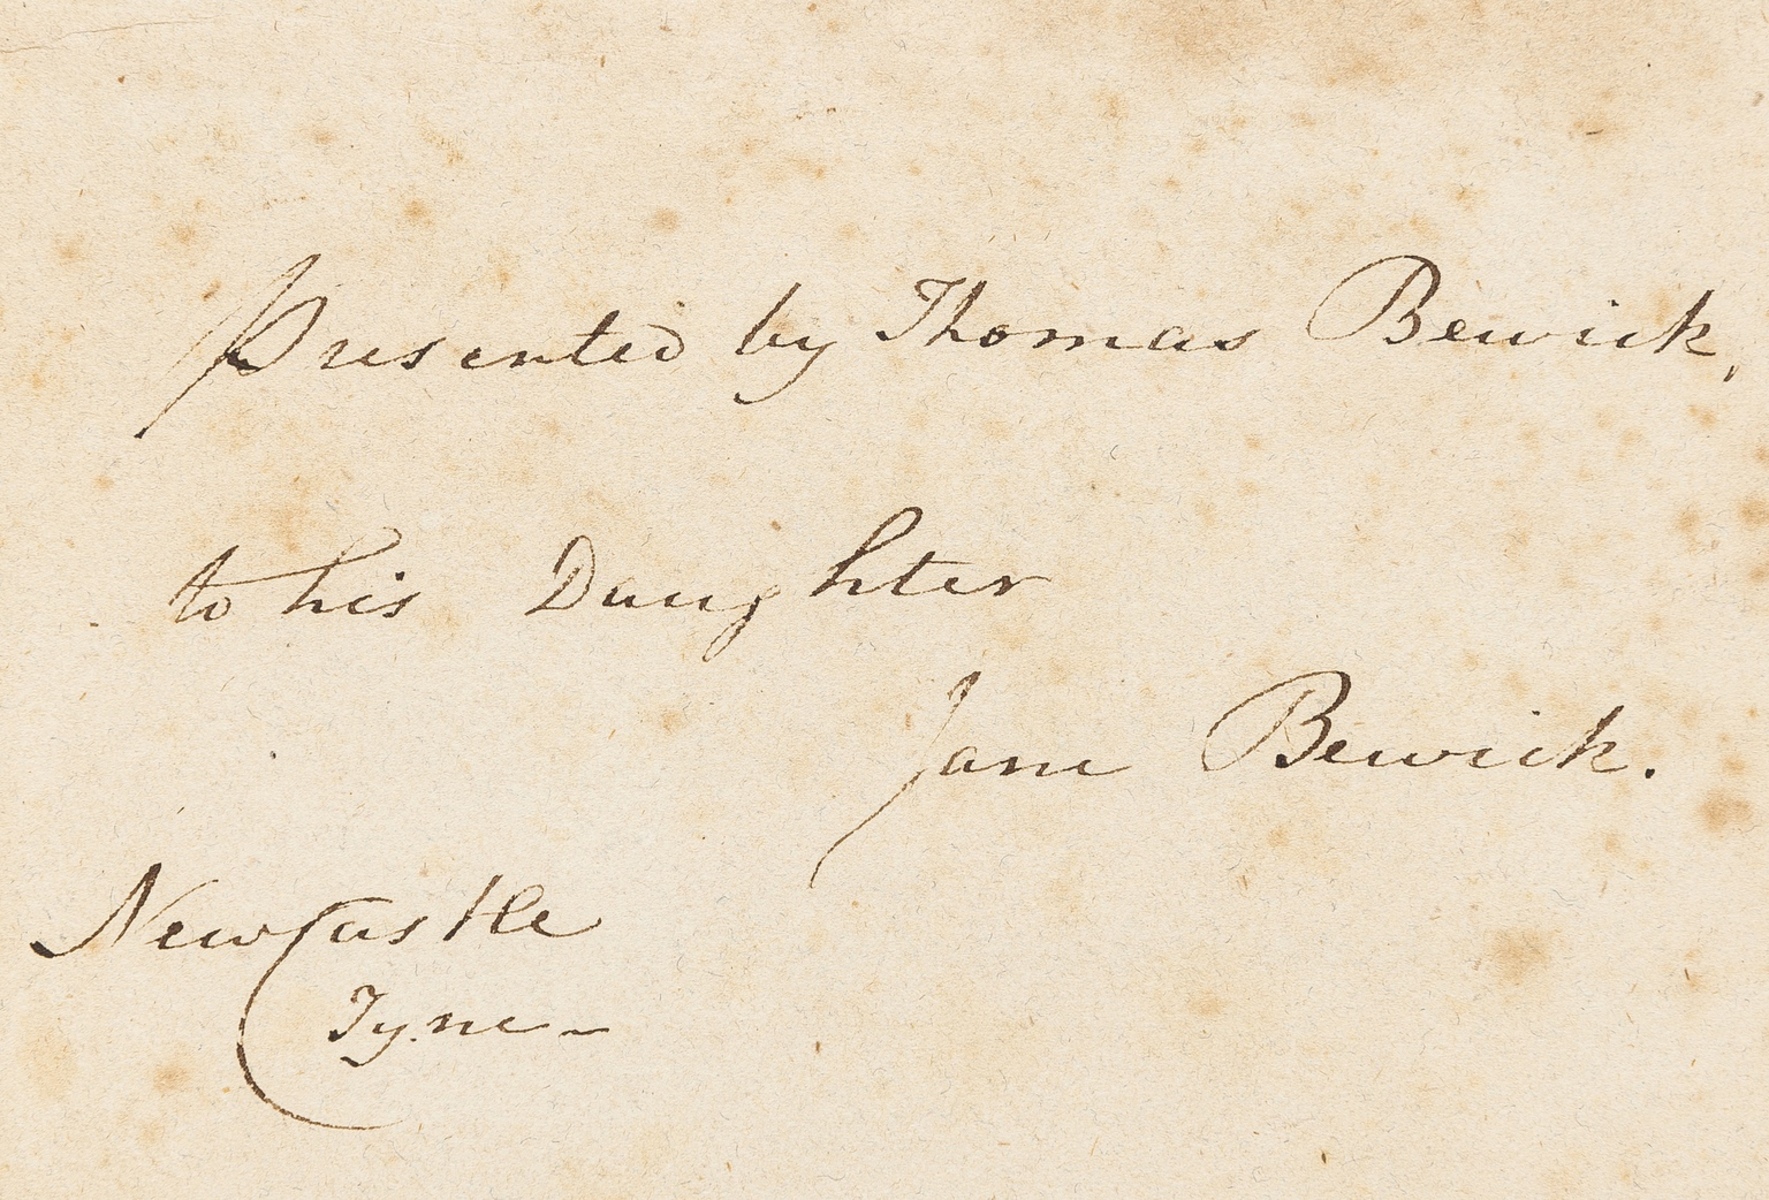 Presented by Thomas Bewick,
to his Daughter
Jane Bewick.
Newcastle
Tyne –